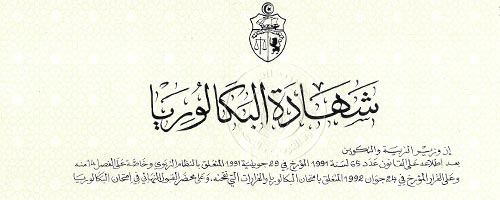 شهادة البكالوريا
إن وزير التربية والتكوين
بعد اطلاعه على القانون عدد 65 لسنة 1991 المؤرخ في 29 جويلية 1991 المتعلق بالنظام التربوي وخاصة على الفصل 14 منه
وعلى القرار المؤرخ في 24 جوان 1992 المتعلق بامتحان البكالوريا والقرارات التي نقحته، وعلى محضر القبول النهائي في امتحان البكالوريا